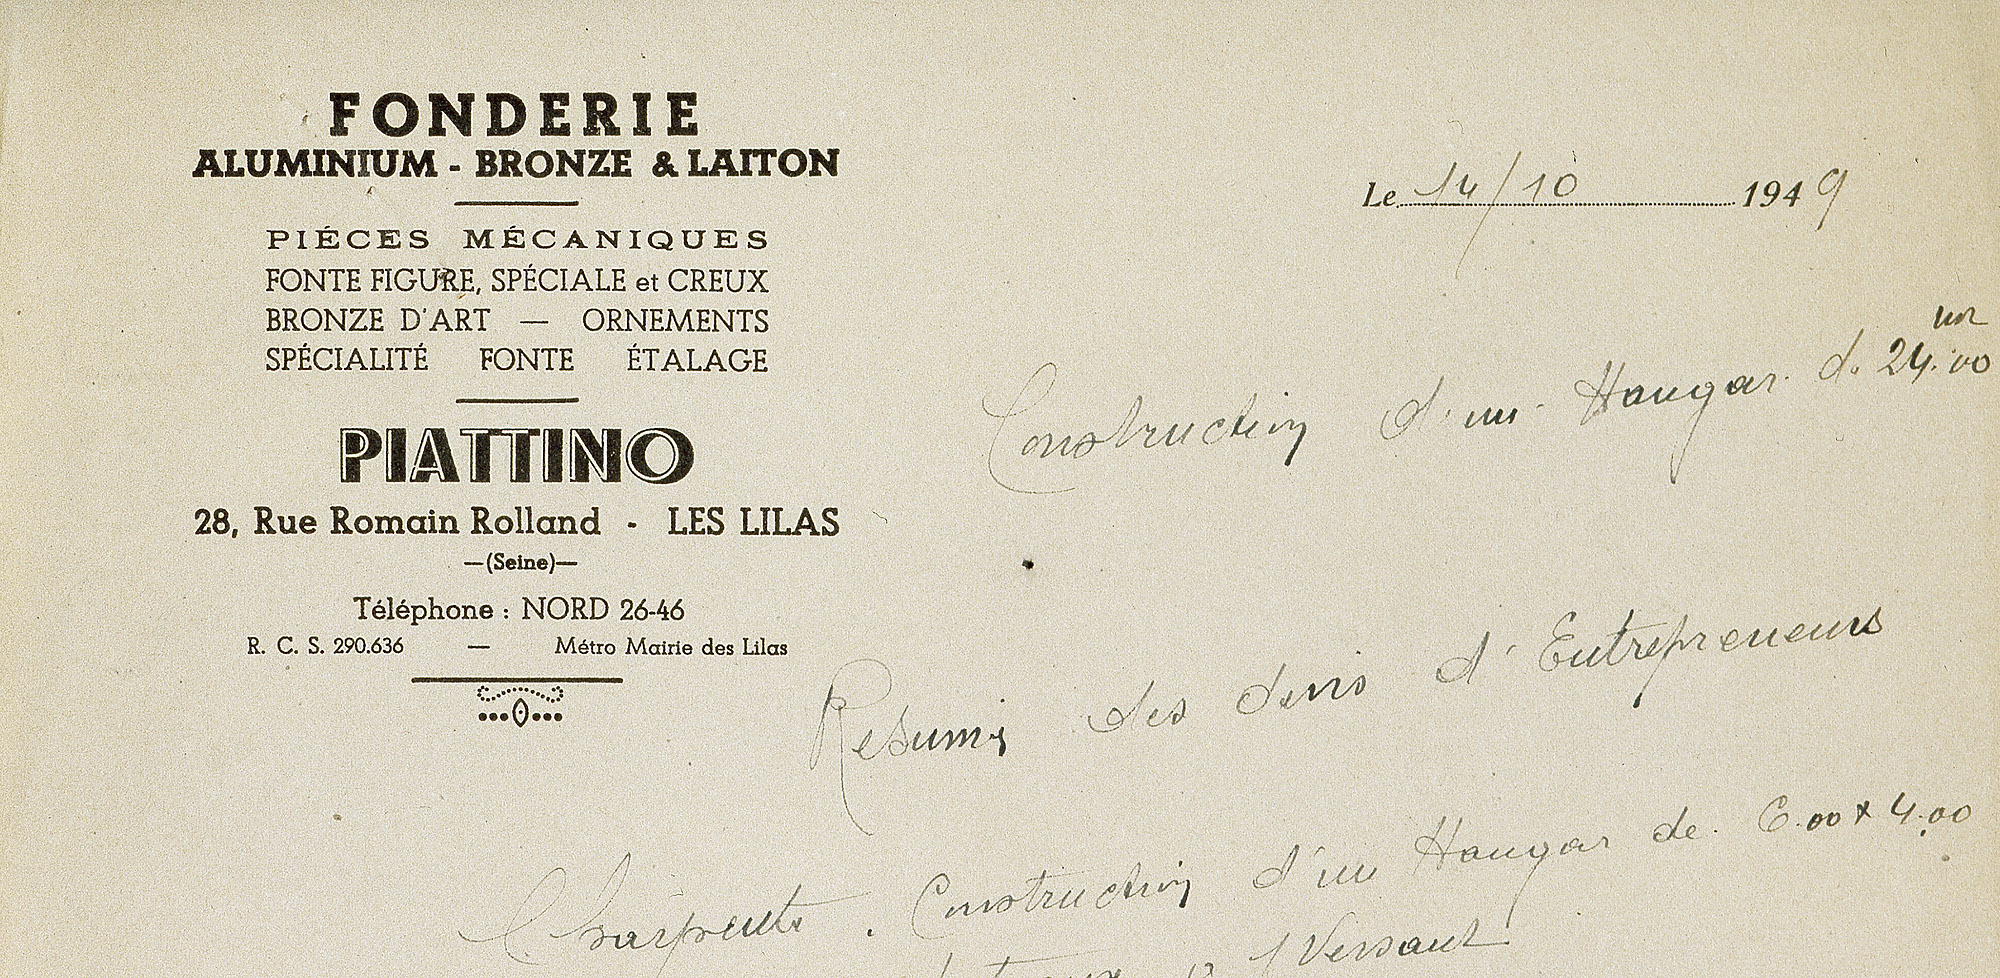 FONDERIE
ALUMINIUM - BRONZE & LAITON
PIÉCES MÉCANIQUES
FONTE FIGURE, SPÉCIALE et CREUX
BRONZE D'ART — ORNEMENTS
SPÉCIALITÉ FONTE ÉTALAGE
PIATTINO
28, Rue Romain Rolland - LES LILAS
—(Seine)—
Téléphone : NORD 26-46
R. C. S. 290.636 — Métro Mairie des Lilas
Le 14/10 1949
Construction d'un Hangar de 24.00
Resumé des devis d'Entrepreneurs
Charpente. Construction d'un Hangar de 6.00 x 4.00
Versant